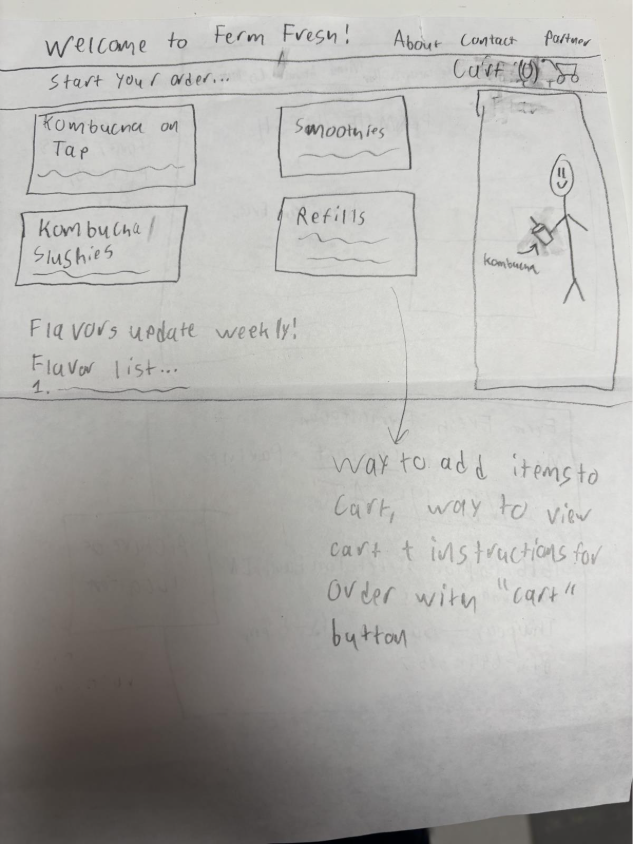 Welcome to Ferm Fresh!
About Contact Partner
Start your order...
Cart (0)
Kombucha on
Tap
Smoothies
Kombucha
Slushies
Refills
Kombucha
Flavors update weekly!
Flavor list...
1.
Way to add items to
Cart, way to view
cart + instructions for
Order with "cart"
button